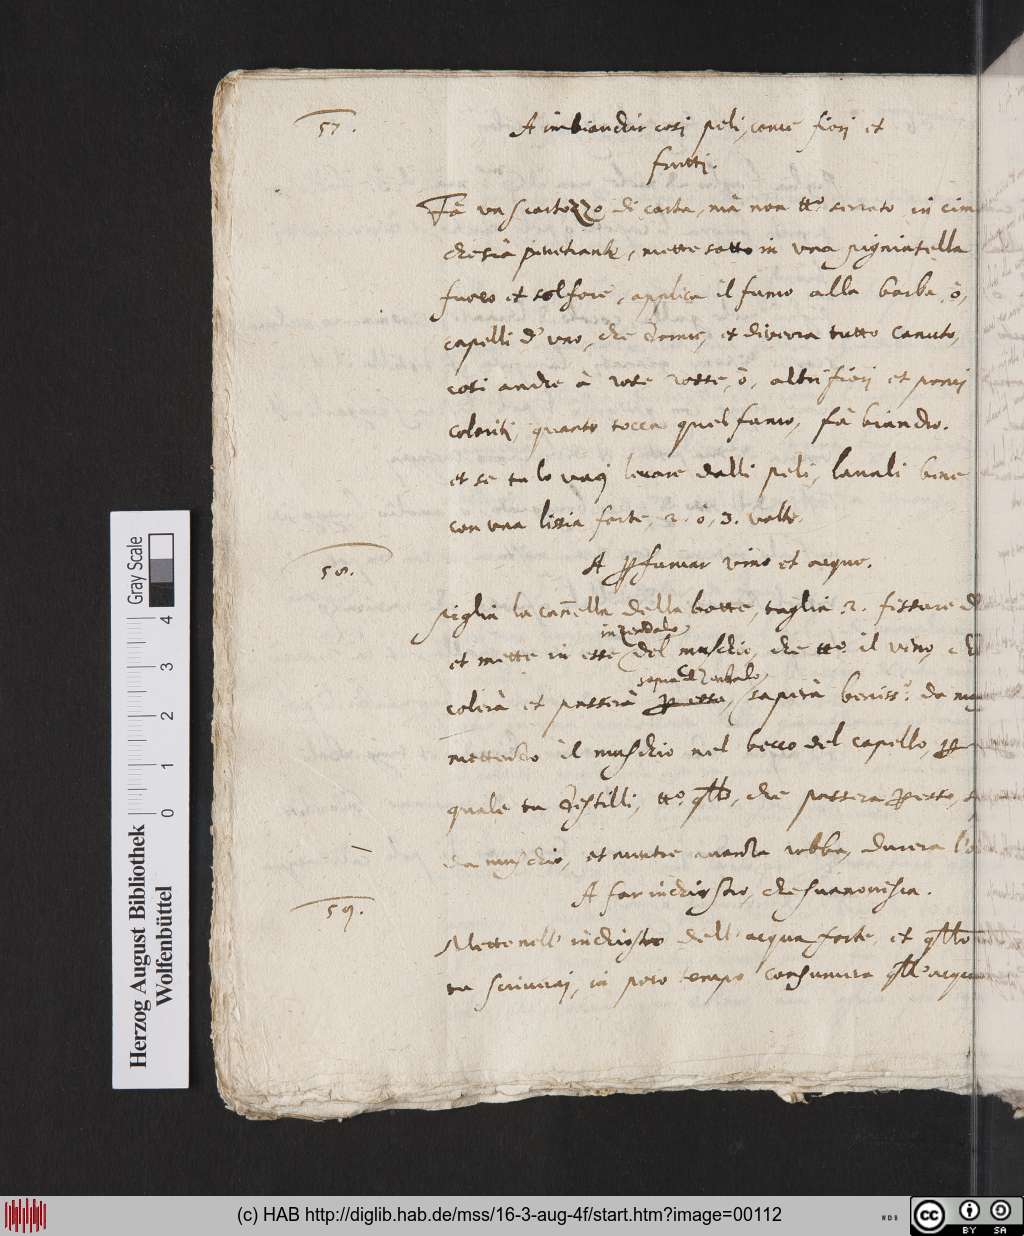 57.
A imbianchir cosi peli, come fiori et
frutti.
Fà un scartozzo di carta, mà non tt.º serrato in cim
che sià penetrante, mette sotto in una pigniatella
fuoco et solfore, applica il fumo alla barba, ò,
capelli d'uno, che dorme, et diverra tutto canuto,
cosi anche à rose rosse, ò, altri fiori et pomi
coloriti, quanto tocca quel fumo, fà biancho.
et se tu lo vuoi levare dalli peli, lavali bene
con una lissia forte, 2. ò, 3. volte.
58.
A pfumar vino et acque.
piglia la canella della botte, taglia .2. fissure d
in zendalo
et mette in esse, del muschio, che tt.º il vino, ch
sopra zendalo
colerà et passerà p esso, saperà beniss.º da mu
mettendo il muschio nel becco del capello, p
quale tu destilli, tt.º qllo, che passera p esso, s
da muschio, et mentre
robba, durera l'o
59.
A far inchiostro, che suanonisca.
Mette nell' inchiostro dell' acqua forte, et qllo
tu scriverai, in poco tempo consumera qll'acqua
Herzog August Bibliothek
Wolfenbüttel
Gray Scale
0 1 2 3 4
(c) HAB http://diglib.hab.de/mss/16-3-aug-4f/start.htm?image=00112
WDB
cc BY SA